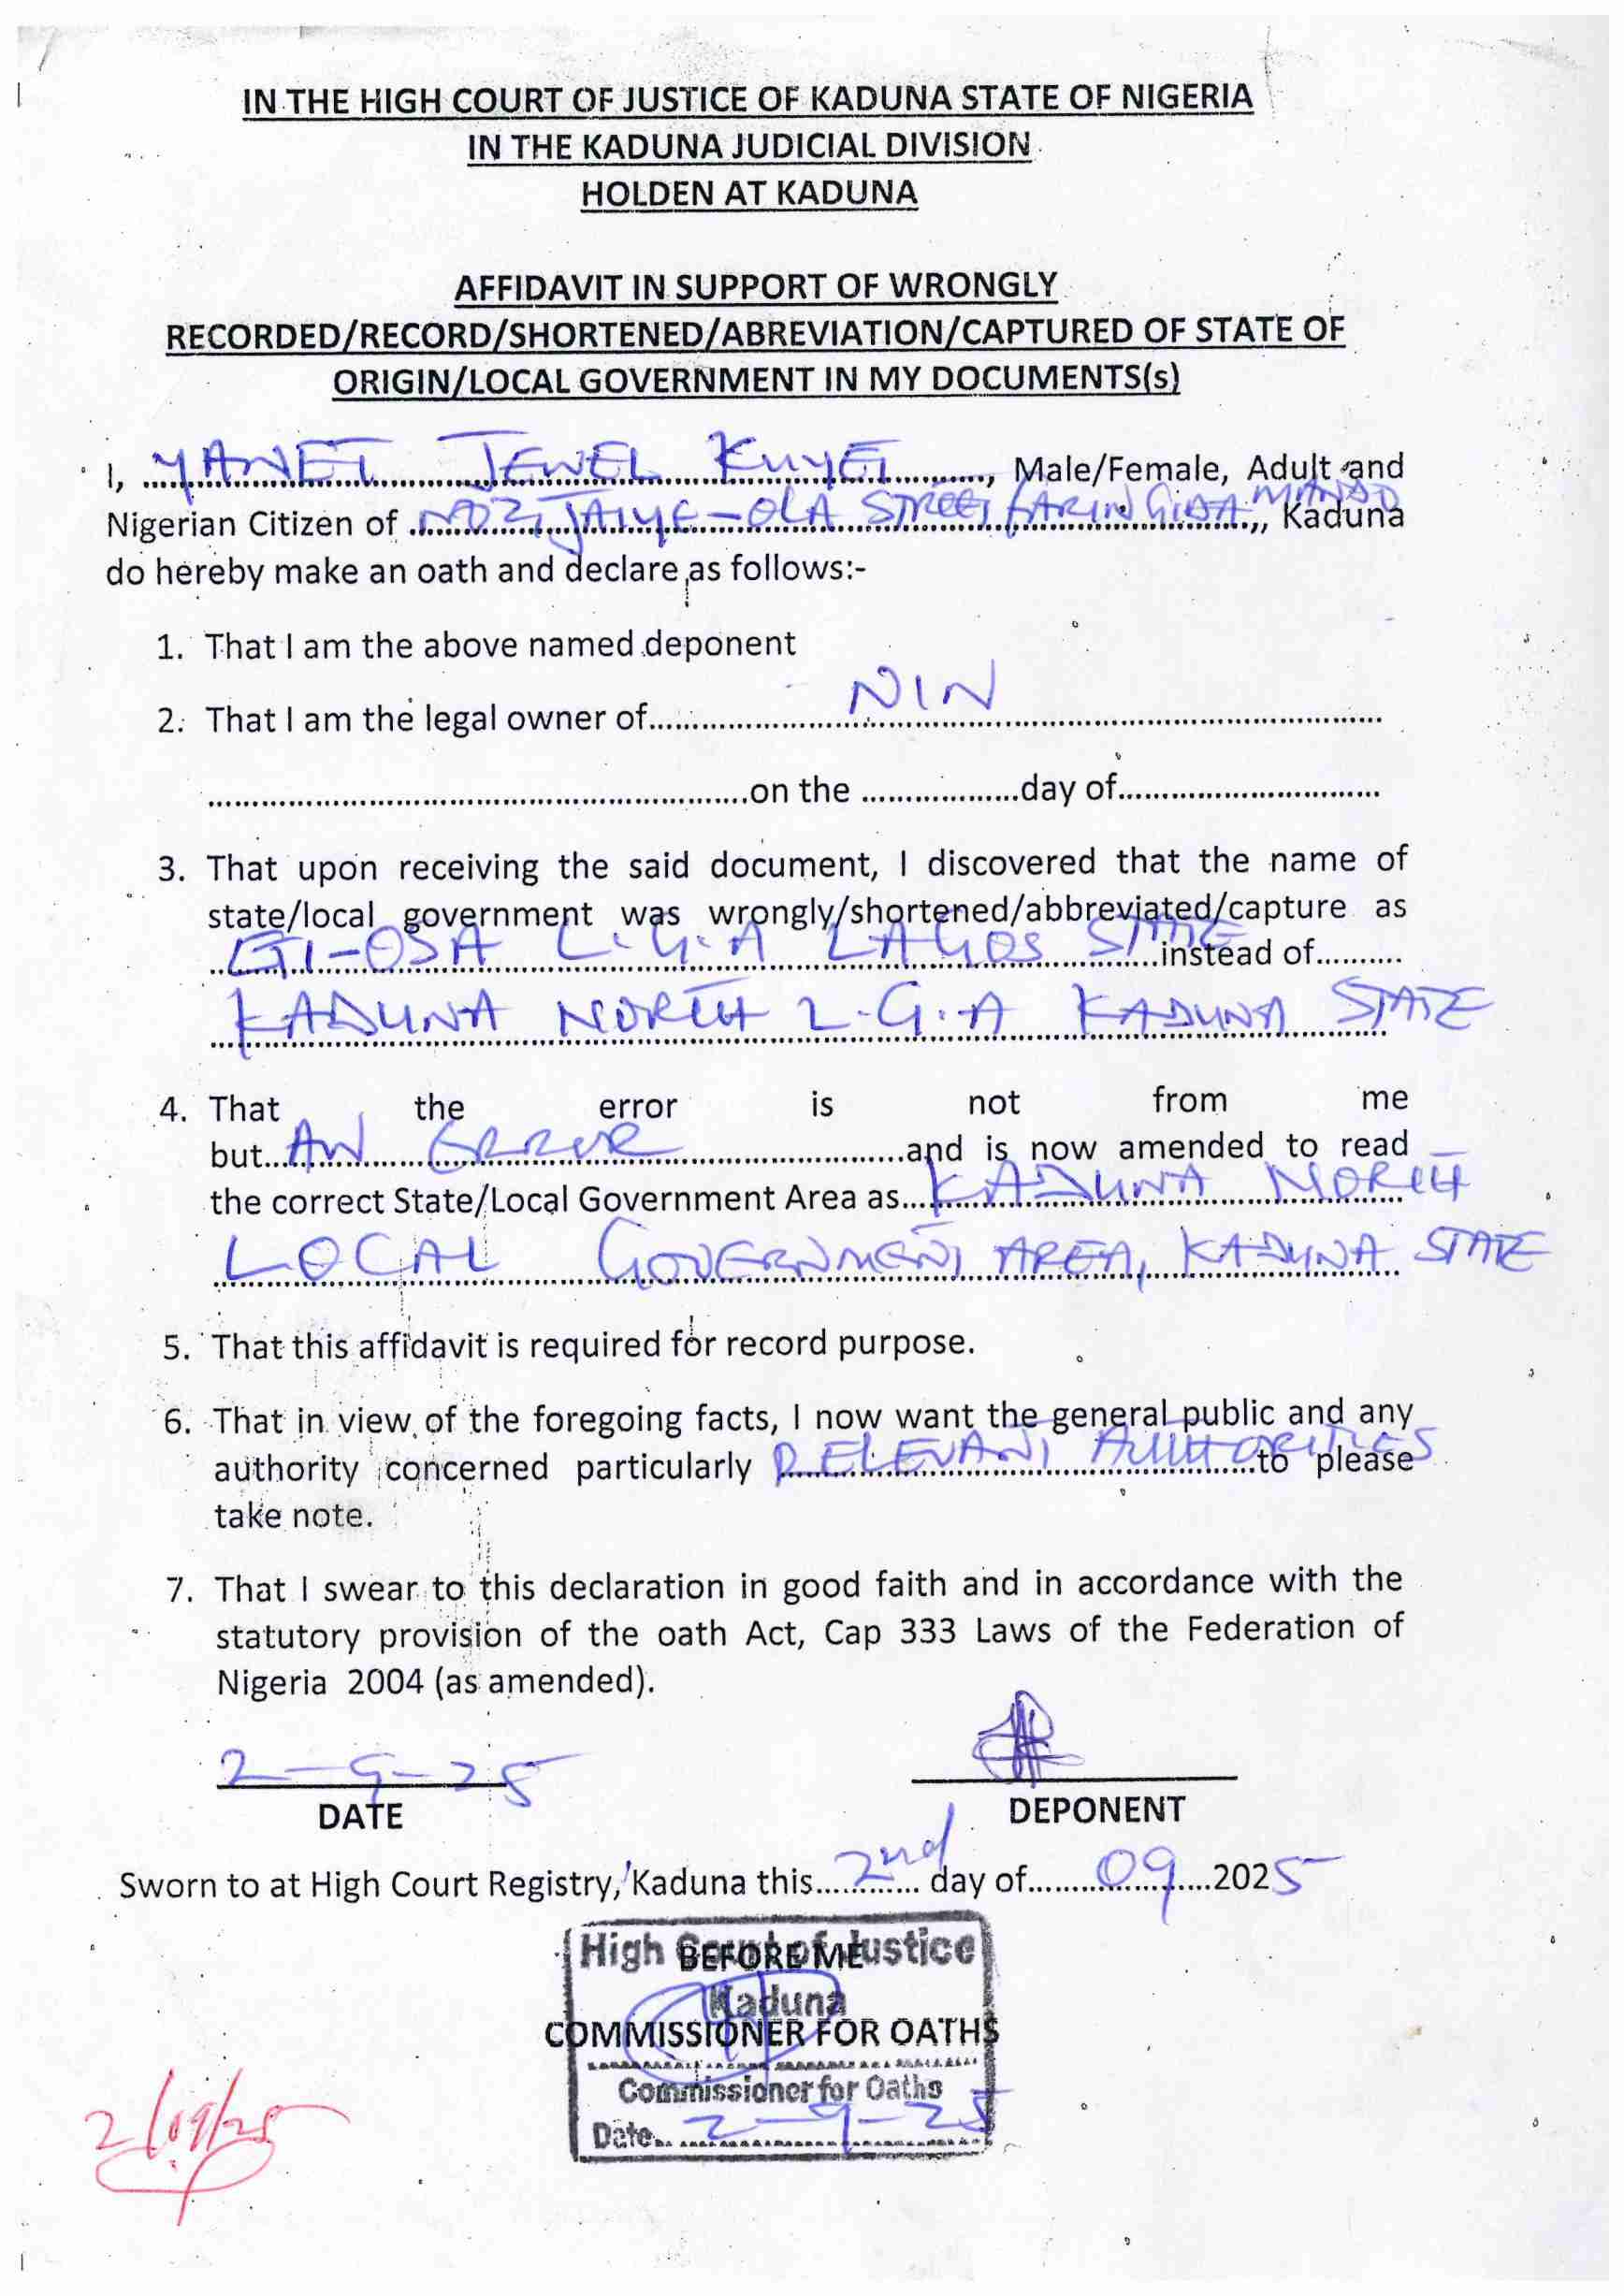 IN THE HIGH COURT OF JUSTICE OF KADUNA STATE OF NIGERIA
IN THE KADUNA JUDICIAL DIVISION
HOLDEN AT KADUNA
AFFIDAVIT IN SUPPORT OF WRONGLY
RECORDED/RECORD/SHORTENED/ABREVIATION/CAPTURED OF STATE OF
ORIGIN/LOCAL GOVERNMENT IN MY DOCUMENTS(s)
I, YANET JEWEL KUYET, Male/Female, Adult and
Nigerian Citizen of JAIYE-OLA STREET,, Kaduna
do hereby make an oath and declare as follows:-
1. That I am the above named deponent
2. That I am the legal owner of NIN
on the day of
3. That upon receiving the said document, I discovered that the name of
state/local government was wrongly/shortened/abbreviated/capture as
ETI-OSA L.G.A LAGOS STATE instead of
KADUNA NORTH L.G.A KADUNA STATE
4. That the error is not from me
but AN ERROR and is now amended to read
the correct State/Local Government Area as KADUNA NORTH
LOCAL GOVERNMENT AREA, KADUNA STATE
5. That this affidavit is required for record purpose.
6. That in view of the foregoing facts, I now want the general public and any
authority concerned particularly RELEVANT AUTHORITIES to please
take note.
7. That I swear to this declaration in good faith and in accordance with the
statutory provision of the oath Act, Cap 333 Laws of the Federation of
Nigeria 2004 (as amended).
2-9-25
DATE DEPONENT
Sworn to at High Court Registry, Kaduna this 2nd day of 09 2025
High Court of Justice
BEFORE ME
Kaduna
COMMISSIONER FOR OATHS
Commissioner for Oaths
Date 2-9-25
2/09/25